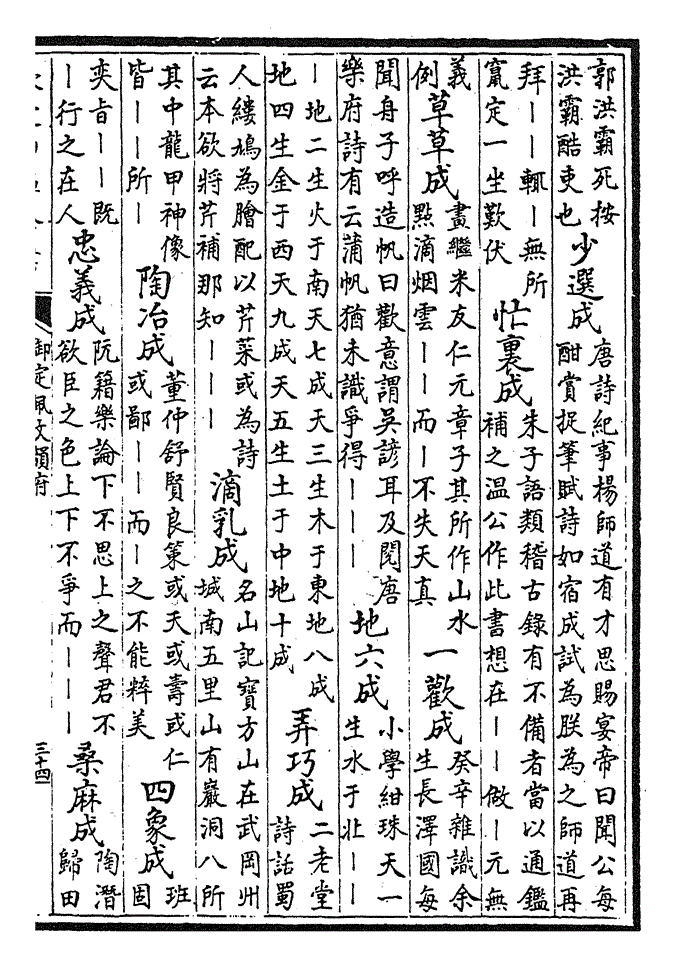 郭洪霸死按
洪霸酷吏也
少選成
唐詩紀事楊師道有才思賜宴帝曰聞公每
酣賞捉筆賦詩如宿成試為朕為之師道再
拜丨丨輒丨無所
竄定一坐歎伏
忙裏成
朱子語類稽古錄有不備者當以通鑑
補之温公作此書想在丨丨做丨元無
義
例
草草成
畫繼米友仁元章子其所作山水
點滴烟雲丨丨而丨不失天真
一歡成
癸辛雜識余
生長澤國每
聞舟子呼造帆曰歡意謂吳諺耳及閱唐
樂府詩有云蒲帆猶未識爭得丨丨丨
地六成
小學紺珠天一
生水于北丨丨
丨地二生火于南天七成天三生木于東地八成
地四生金于西天九成天五生土于中地十成
弄巧成
二老堂
詩話蜀
人縷鳩為膾配以芹菜或為詩
云本欲將芹補那知丨丨丨
滴乳成
名山記寶方山在武岡州
城南五里山有巖洞八所
其中龍甲神像
皆丨丨所丨
陶冶成
董仲舒賢良策或夭或壽或仁
或鄙丨丨而丨之不能粹美
四象成
班
固
奕旨丨丨既
丨行之在人
忠義成
阮籍樂論下不思上之聲君不
欲臣之色上下不爭而丨丨丨
桑麻成
陶潛
歸田
御定佩文韻府
三十四